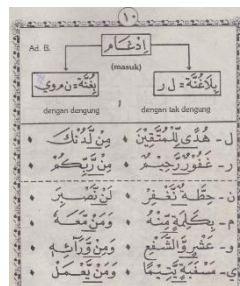 ١٠
Ad. B.
اِدْغَامْ
(masuk)
بِلَاغُنَّةْ = ل ر
بِغُنَّةْ = ن م و ي
dengan dengung
dengan tak dengung
ل - هُدًى لِّلْمُتَّقِيْنَ • مِنْ لَّدُنْكَ •
ر - غَفُوْرٌ رَّحِيْمٌ • مِنْ رَّبِّكُمْ •
ن - حِطَّةٌ نَّغْفِرْ • لَنْ نَّصْبِرَ •
م - بِكَلِمَةٍ مِّنْهُ • وَمَنْ مَّعَهُ •
و - عَشْرٍ وَّالشَّفْعِ • وَمِنْ وَّرَآئِهِ •
ي - مَسْغَبَةٍ يَّتِيْمًا • وَمَنْ يَّعْمَلْ •